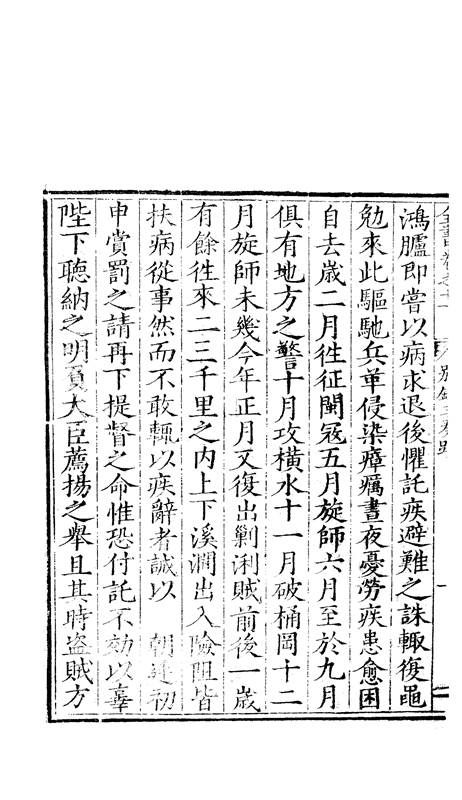 全書卷之十一 別錄三 奏疏
鴻臚即嘗以病求退後懼託疾避難之誅輙復黽
勉來此驅馳兵革侵染瘴癘晝夜憂勞疾患愈困
自去歲二月徃征閩寇五月旋師六月至於九月
俱有地方之警十月攻橫水十一月破桶岡十二
月旋師未幾今年正月又復出剿浰賊前後一歲
有餘徃來二三千里之內上下溪澗出入險阻皆
扶病從事然而不敢輙以疾辭者誠以 朝廷初
申賞罰之請再下提督之命惟恐付託不効以辜
陛下聽納之明負大臣薦揚之舉且其時盜賊方